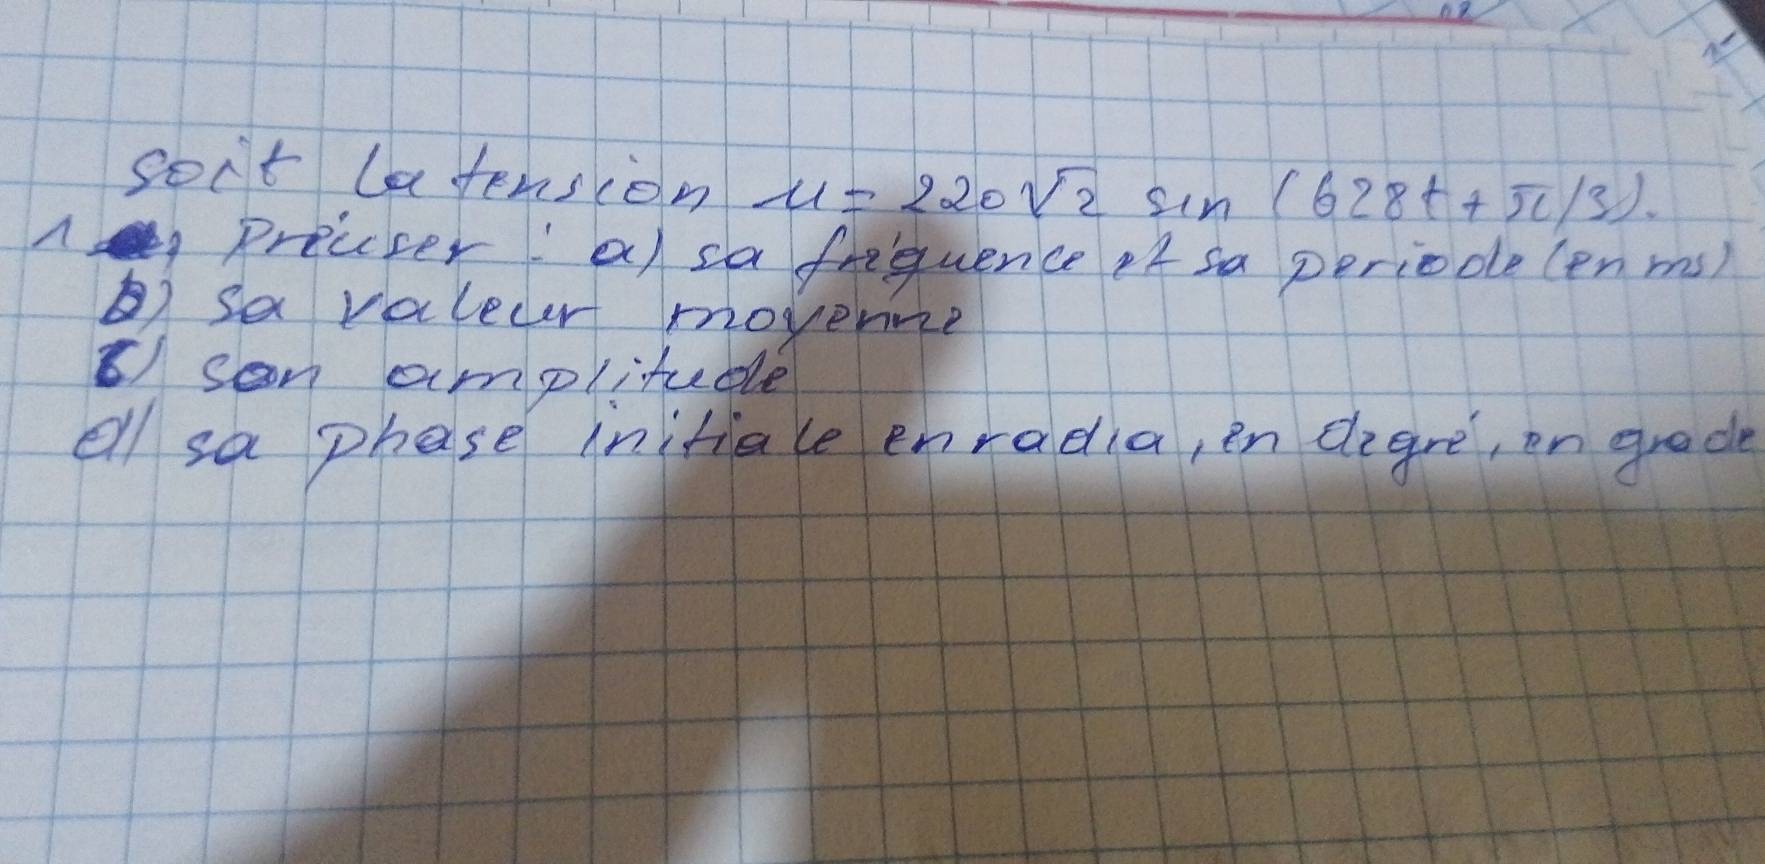 soit la tension u = 220√2 sin (628t + π/3).
1 a) Préciser : a) sa fréquence et sa periode (en ms)
b) sa valeur moyenne
c) son amplitude
d) sa phase initiale en radia, en degré, en grade